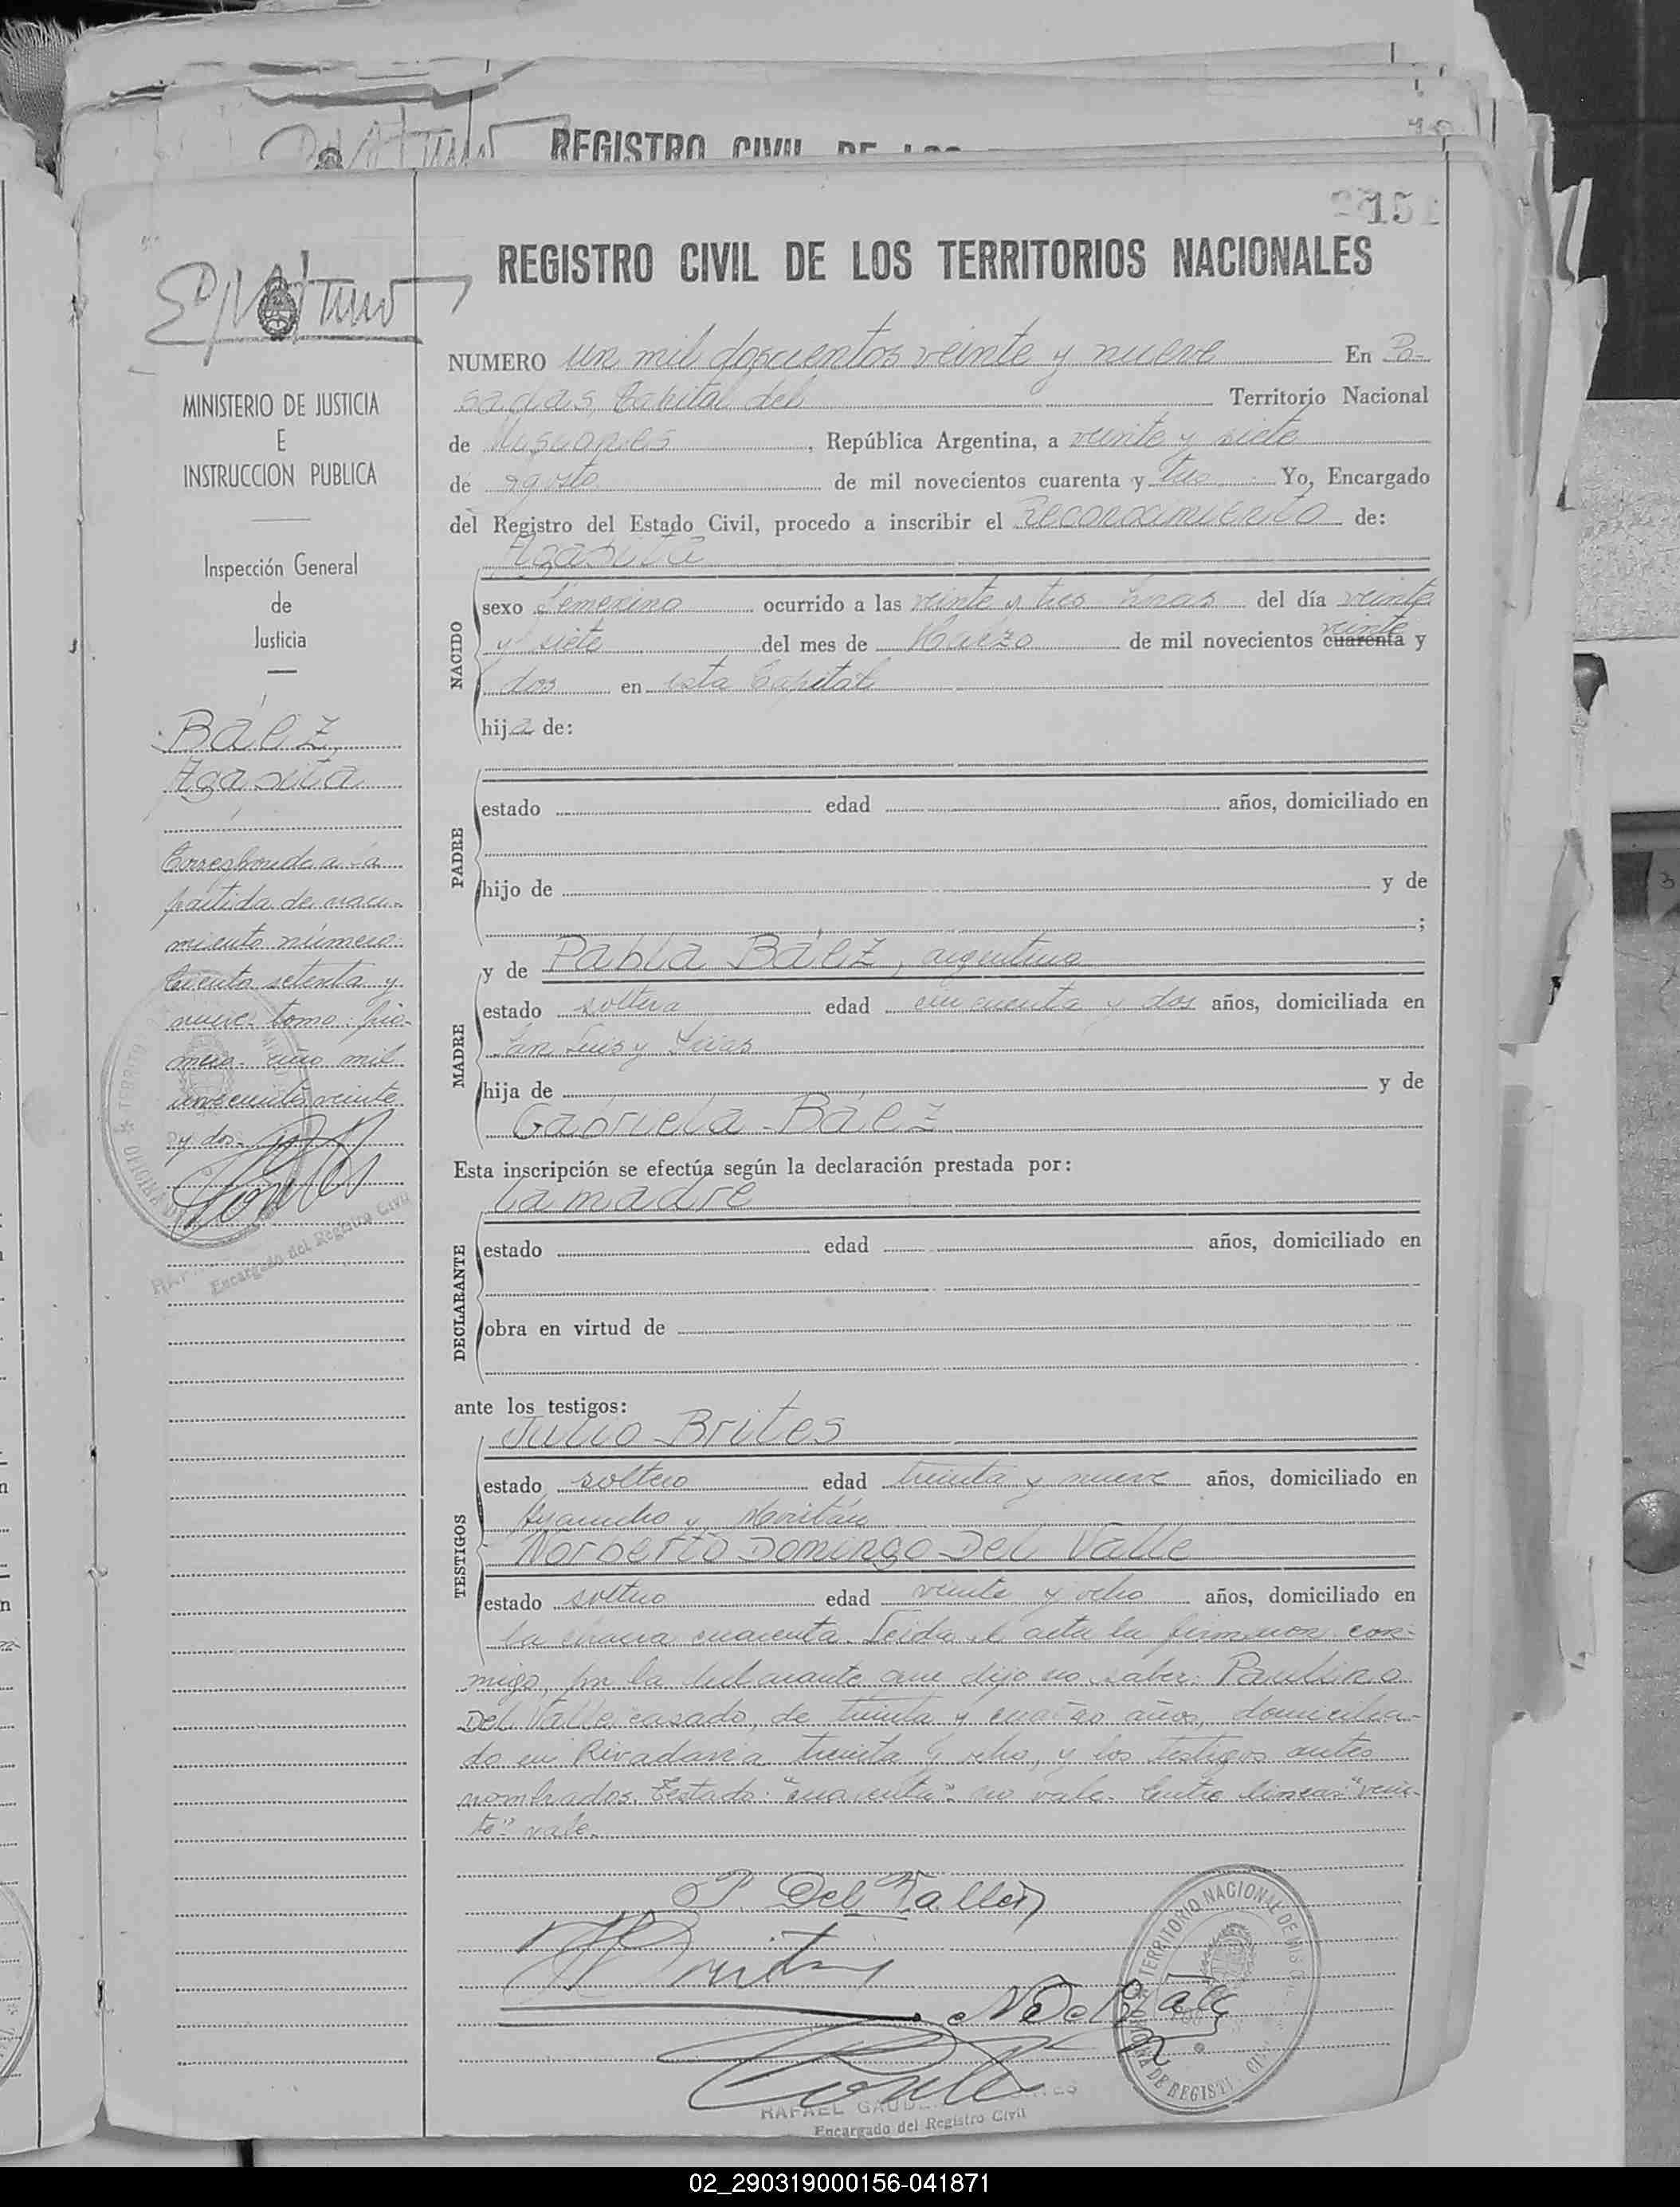 REGISTRO CIVIL DE LOS
151
REGISTRO CIVIL DE LOS TERRITORIOS NACIONALES
MINISTERIO DE JUSTICIA
E
INSTRUCCION PUBLICA
Inspección General
de
Justicia
Báez,
Agapita
Corresponde a la
partida de naci-
miento número
ciento setenta y
nueve tomo pri-
mero año mil
novecientos veinte
y dos.
Encargado del Registro Civil
NUMERO un mil doscientos veinte y nueve En Po-
sadas, Capital del Territorio Nacional
de Misiones, República Argentina, a veinte y siete
de agosto de mil novecientos cuarenta y tres. Yo, Encargado
del Registro del Estado Civil, procedo a inscribir el Reconocimiento de:
Agapita
NACIDO
sexo femenino ocurrido a las veinte y tres horas del día veinte
y siete del mes de Marzo de mil novecientos cuarenta veinte y
dos en esta Capital
hija de:
PADRE
estado edad años, domiciliado en
hijo de y de
;
MADRE
y de Pabla Báez, argentina
estado soltera edad cincuenta y dos años, domiciliada en
San Luis y
hija de y de
Gabriela Báez
Esta inscripción se efectúa según la declaración prestada por:
la madre
DECLARANTE
estado edad años, domiciliado en
obra en virtud de
ante los testigos:
TESTIGOS
Julio Brites
estado soltero edad treinta y nueve años, domiciliado en
Ayacucho y
Norberto Domingo Del Valle
estado soltero edad veinte y ocho años, domiciliado en
la chacra cuarenta. Leída el acta la firmaron con-
migo, por la declarante que dijo no saber: Paulino
Del Valle, casado, de treinta y cuatro años, domicilia-
do en Rivadavia treinta y ocho, y los testigos antes
nombrados. Testado: "cuarenta" no vale. Entre lineas "vein-
te" vale.
P. Del Valle
TERRITORIO NACIONAL DE MISIONES
RAFAEL
Encargado del Registro Civil
02_290319000156-041871